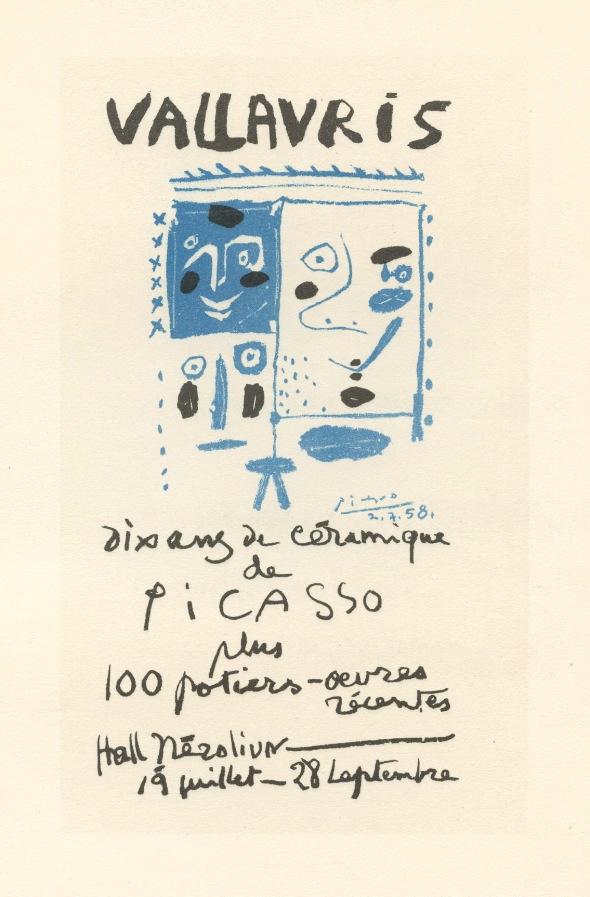 VALLAVRIS
Picasso
2.7.58.
dix ans de céramique
de
PiCASSO
plus
100 potiers-oevres
récentes
Hall Nérolium
19 juillet - 28 Septembre